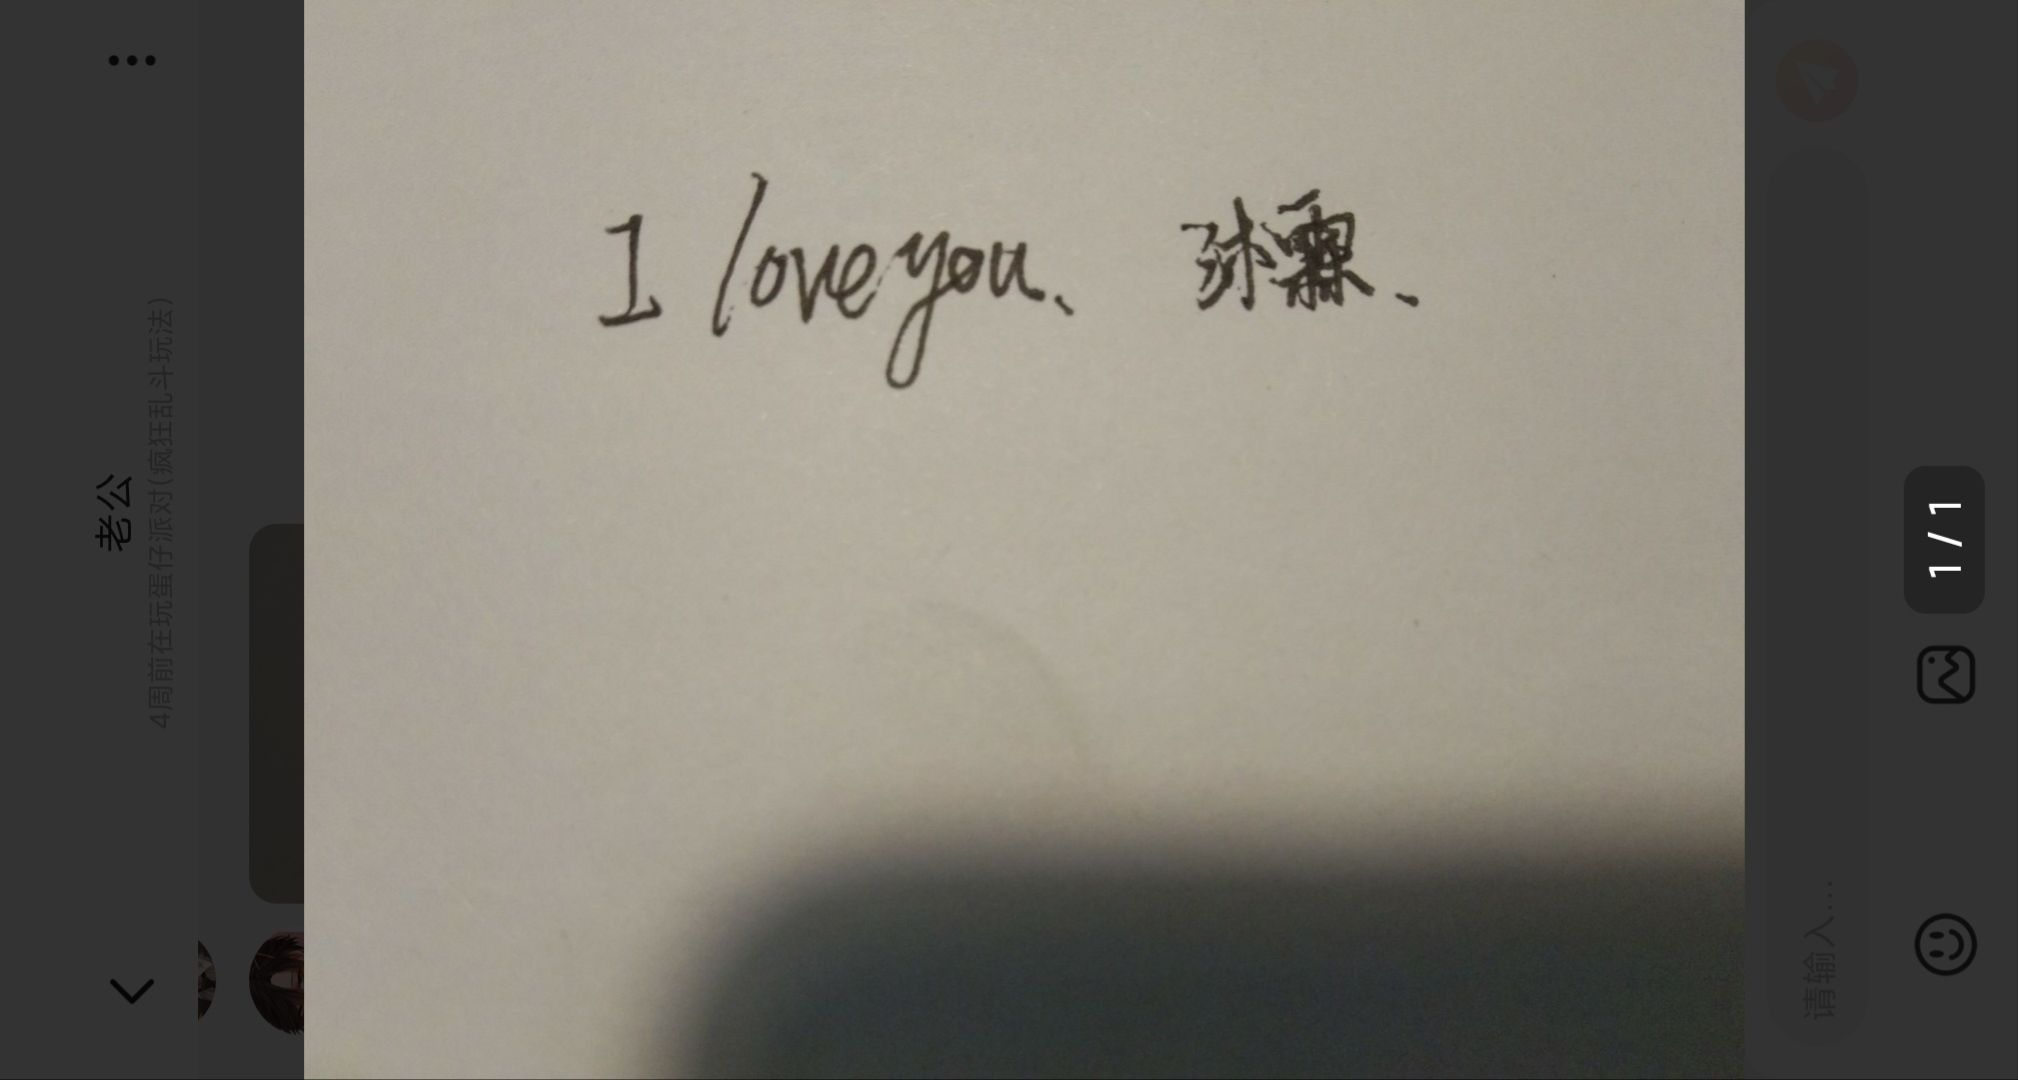 I love you.
老公
4周前在玩蛋仔派对(疯狂乱斗玩法)
请输入...
1 / 1